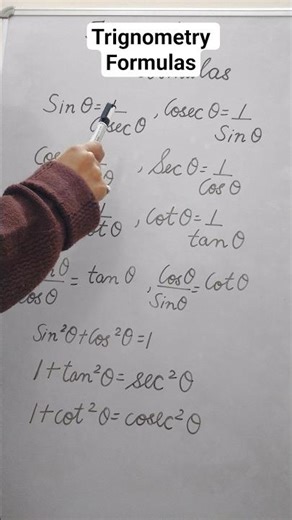 Trignometry
Formulas
Sinθ=1/Cosecθ , Cosecθ=1/Sinθ
, Secθ=1/Cosθ
, Cotθ=1/tanθ
= tanθ , Cosθ/Sinθ=Cotθ
Sin²θ+Cos²θ=1
1+tan²θ=sec²θ
1+cot²θ=cosec²θ